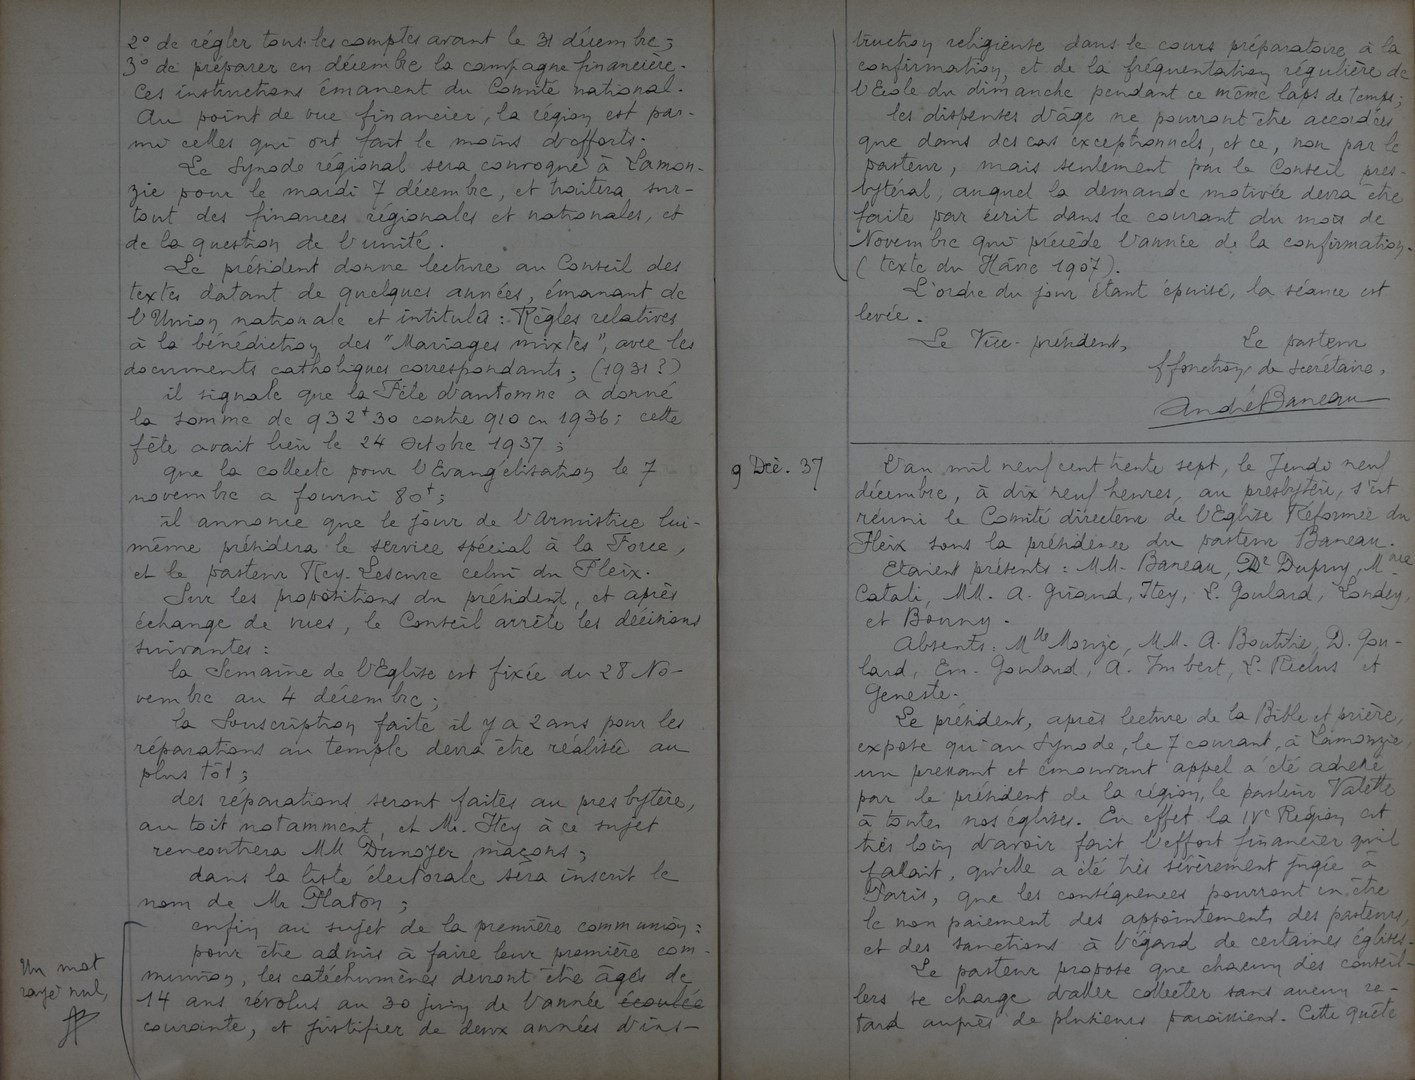 2° de régler tous les comptes avant le 31 décembre;
3° de préparer en décembre la campagne financière.
Ces instructions émanent du Comité national.
Au point de vue financier, la région est par-
mi celles qui ont fait le moins d'efforts.
Le Synode régional sera convoqué à Lamon-
zie pour le mardi 7 décembre, et traitera sur-
tout des finances régionales et nationales, et
de la question de l'unité.
Le président donne lecture au Conseil des
textes datant de quelques années, émanant de
l'Union nationale et intitulés : Règles relatives
à la bénédiction des "Mariages mixtes", avec les
documents catholiques correspondants; (1931?)
il signale que la Fête d'automne a donné
la somme de 932f30 contre 910 en 1936; cette
fête avait lieu le 24 Octobre 1937;
que la collecte pour l'Evangélisation le 7
novembre a fourni 80f;
il annonce que le jour de l'Armistice lui-
même présidera le service spécial à la Force,
et le pasteur Rey-Lescure celui du Fleix.
Sur les propositions du président, et après
échange de vues, le Conseil arrête les décisions
suivantes :
la Semaine de l'Eglise est fixée du 28 No-
vembre au 4 décembre;
la Souscription faite il y a 2 ans pour les
réparations au temple devra être réalisée au
plus tôt;
des réparations seront faites au presbytère,
au toit notamment, et Mr. Itey à ce sujet
rencontrera MM Dunoyer maçons;
dans la liste électorale sera inscrit le
nom de Mr Platon;
enfin au sujet de la première communion :
pour être admis à faire leur première com-
munion, les catéchumènes devront être âgés de
14 ans révolus au 30 juin de l'année écoulée
courante, et justifier de deux années d'ins-
Un mot
rayé nul,
truction religieuse dans le cours préparatoire à la
confirmation, et de la fréquentation régulière de
l'Ecole du dimanche pendant ce même laps de temps;
les dispenses d'âge ne pourront être accordées
que dans des cas exceptionnels, et ce, non par le
pasteur, mais seulement par le Conseil pres-
bytéral, auquel la demande motivée devra être
faite par écrit dans le courant du mois de
Novembre qui précède l'année de la confirmation.
(texte du Hâvre 1907).
L'ordre du jour étant épuisé, la séance est
levée.
Le Vice-président, Le pasteur
ffonction de secrétaire,
André Baneau
9 Déc. 37
L'an mil neuf cent trente sept, le Jeudi neuf
décembre, à dix neuf heures, au presbytère, s'est
réuni le Comité directeur de l'Eglise Réformée du
Fleix sous la présidence du pasteur Baneau.
Etaient présents : MM. Baneau, Dr Dupuy, Mme
Catali, MM. A. Giraud, Itey, L. Goulard, Londey,
et Bonny.
Absents : Mlle Monze, MM. A. Boutitie, D. Gou-
lard, Em. Goulard, A. Imbert, L. Reclus et
Geneste.
Le président, après lecture de la Bible et prière,
expose qu'au Synode, le 7 courant, à Lamonzie,
un pressant et émouvant appel a été adressé
par le président de la région, le pasteur Valette
à toutes nos églises. En effet la IVe Région est
très loin d'avoir fait l'effort financier qu'il
fallait, qu'elle a été très sévèrement jugée à
Paris, que les conséquences pourront en être
le non paiement des appointements des pasteurs,
et des sanctions à l'égard de certaines églises.
Le pasteur propose que chacun des conseil-
lers se charge d'aller collecter sans aucun re-
tard auprès de plusieurs paroissiens. Cette quête